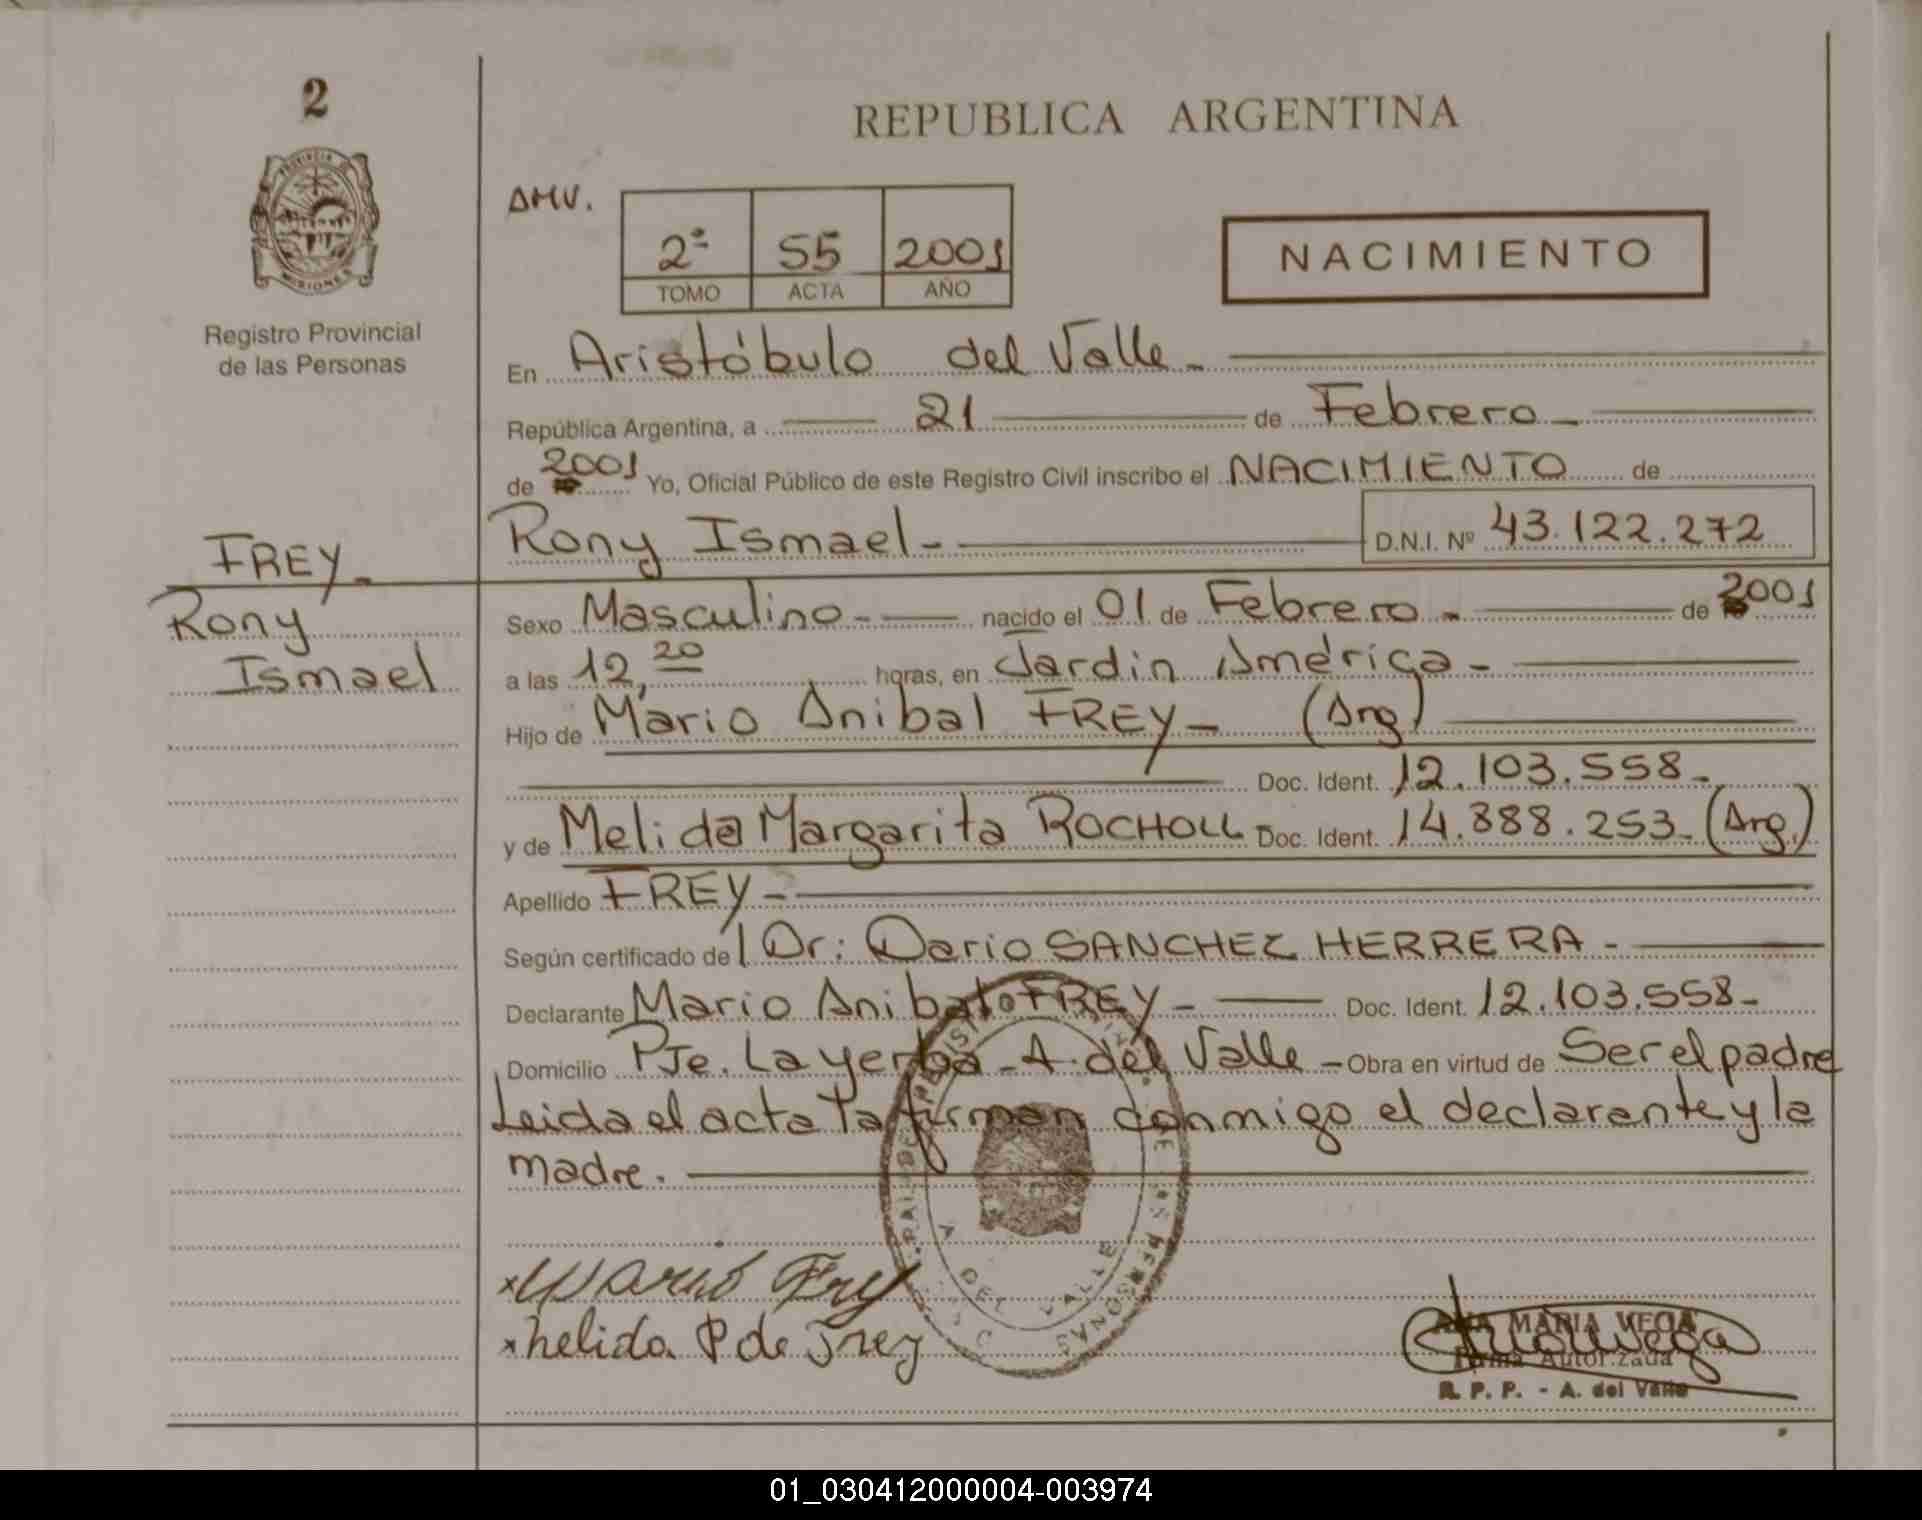 2
REPUBLICA ARGENTINA
PROVINCIA DE
MISIONES
Registro Provincial
de las Personas
AMV.
2ª 55 2001
TOMO ACTA AÑO
NACIMIENTO
En Aristóbulo del Valle -
República Argentina, a 21 de Febrero -
de 2001 Yo, Oficial Público de este Registro Civil inscribo el NACIMIENTO de
FREY -
Rony Ismael - D.N.I. Nº 43.122.272
Rony
Ismael
Sexo Masculino - nacido el 01 de Febrero - de 2001
a las 12,20 horas, en Jardin América -
Hijo de Mario Anibal FREY - (Arg)
Doc. Ident. 12.103.558 -
y de Melida Margarita ROCHOLL - Doc. Ident. 14.888.253 - (Arg.)
Apellido FREY -
Según certificado del Dr: Dario SANCHEZ HERRERA -
Declarante Mario Anibal FREY - Doc. Ident. 12.103.558 -
Domicilio Pje. La yerba - A. del Valle - Obra en virtud de Ser el padre
Leida el acta la firman conmigo el declarante y la
madre.
A. DEL VALLE
PERSONAS
x Mario Frey
x helida P de Frey
ANA MARIA VEGA
Firma Autorizada
R. P. P. - A. del Valle
01_030412000004-003974